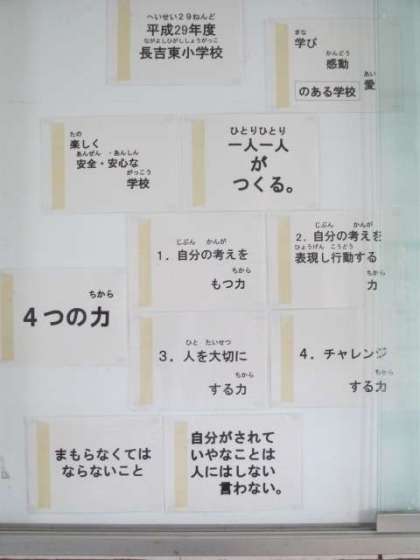 へいせい29ねんど
平成29年度
ながよしひがししょうがっこ
長吉東小学校
まな
学び
かんどう
感動
あい
愛
のある学校
たの
楽しく
あんぜん・あんしん
安全・安心な
がっこう
学校
ひとりひとり
一人一人
が
つくる。
ちから
4つの力
じぶん かんが
1.自分の考えを
ちから
もつ力
じぶん かんが
2.自分の考えを
ひょうげん こうどう
表現し行動する
ちから
力
ひと たいせつ
3.人を大切に
ちから
する力
4.チャレンジ
ちから
する力
まもらなくては
ならないこと
自分がされて
いやなことは
人にはしない
言わない。